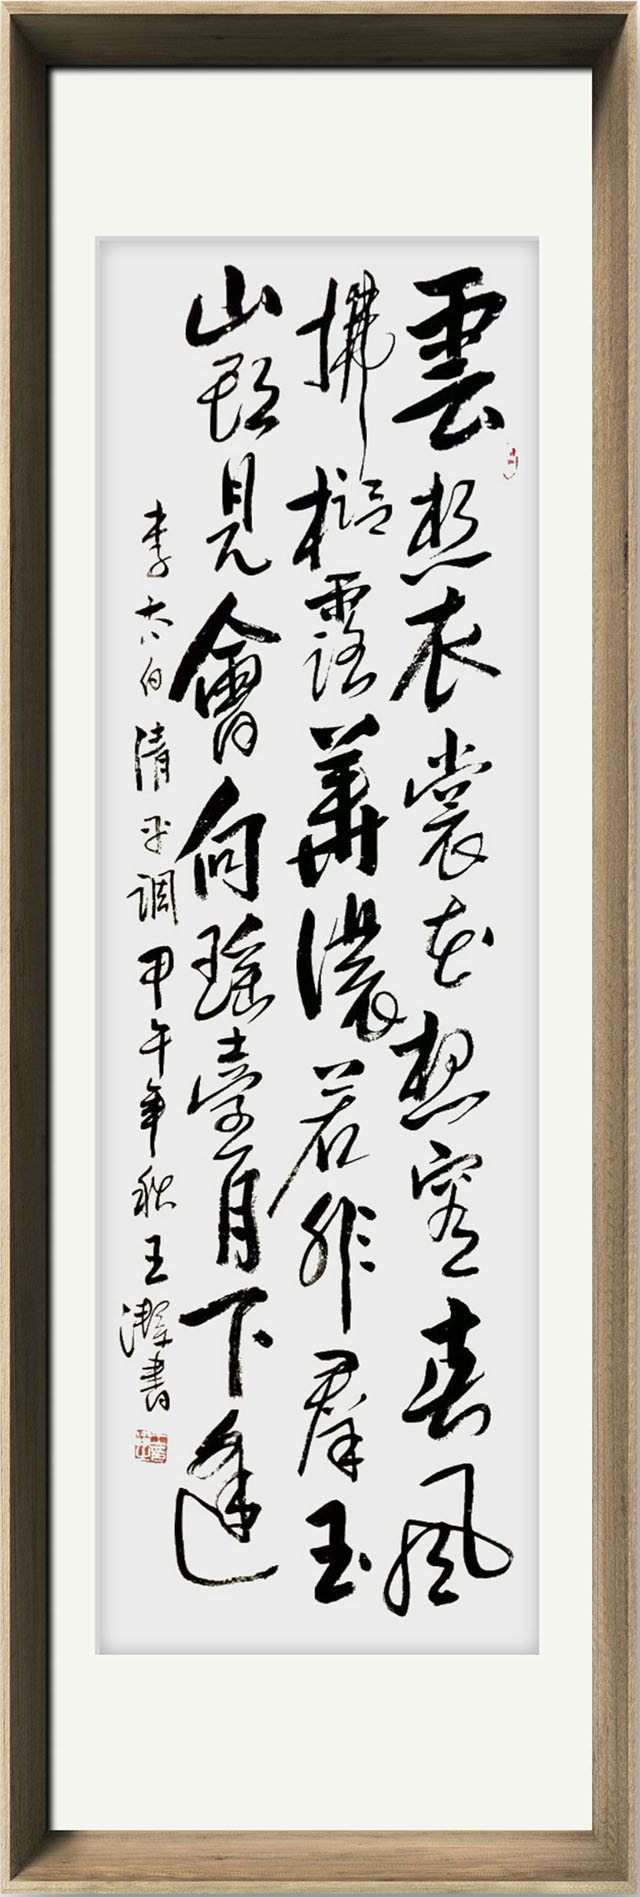 雲想衣裳花想容春風
拂檻露華濃若非羣玉
山頭見會向瑤臺月下逢
李太白清平調甲午年秋王書